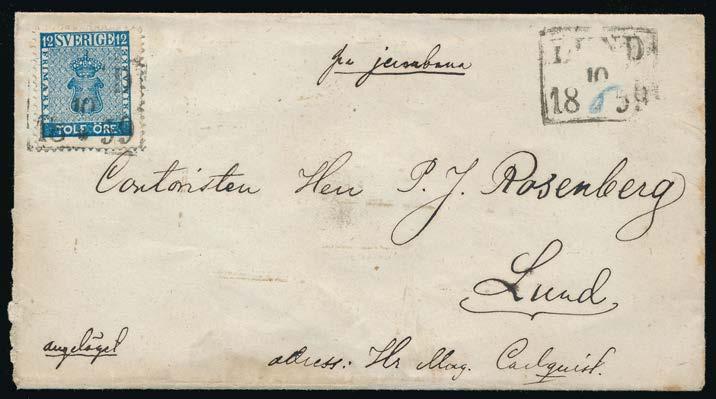 12 SVERIGE 12
FRIMÄRKE
TOLF ÖRE
10
18 59
pr jernbana
LUND
10
18 6 59
Contoristen Herr P. J. Rosenberg
Lund
angeläget
adress: Hr Mag. Carlquist.